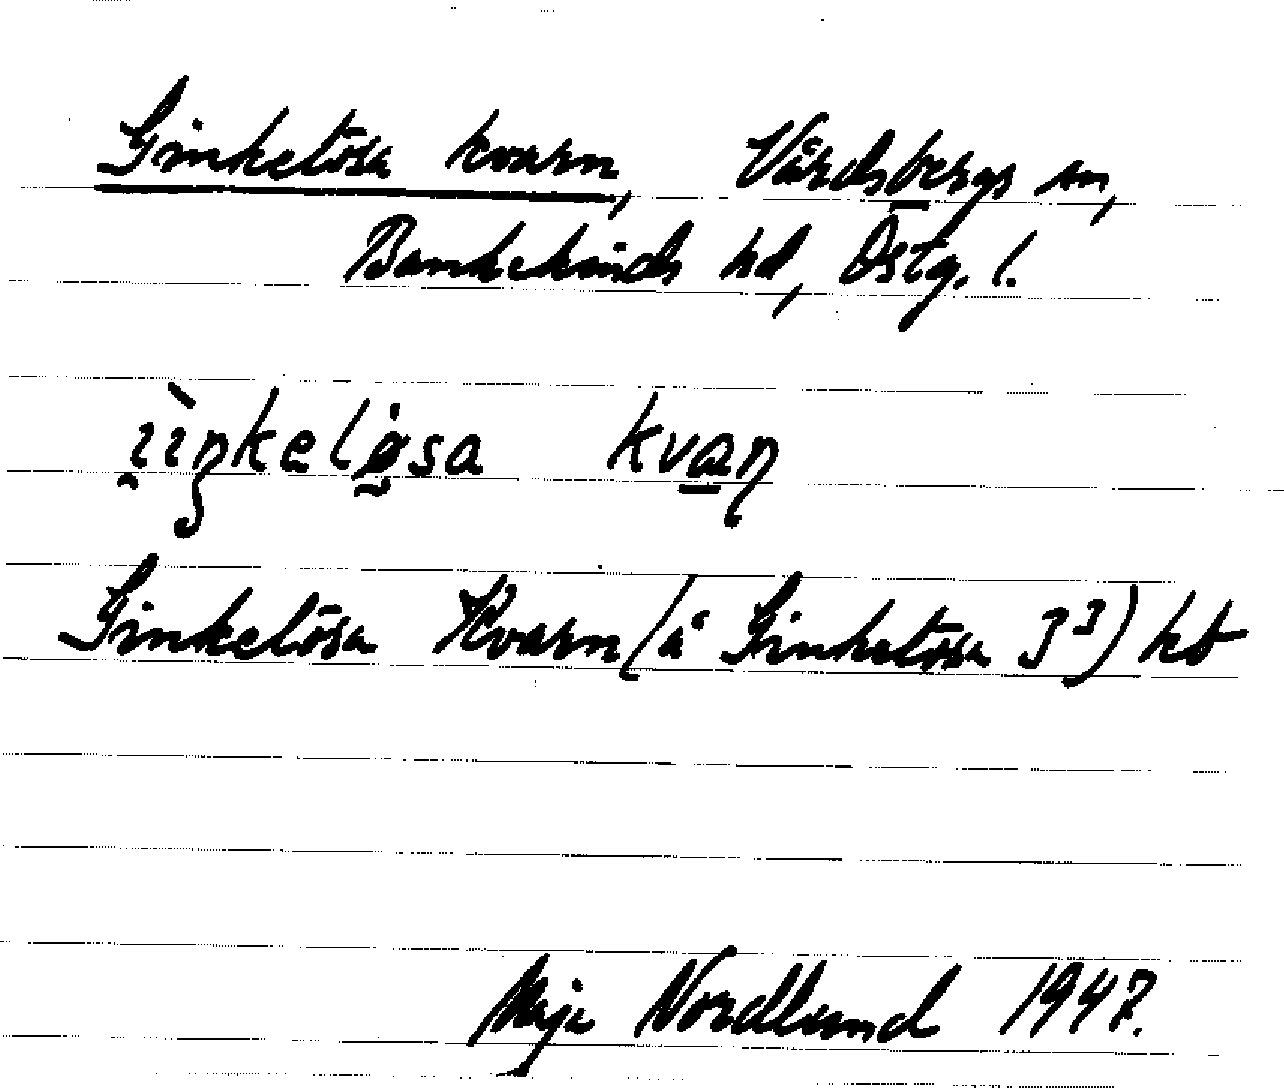 Ginkelösa kvarn, Vårdsbergs sn,
Bankekinds hd, Östg. l.
kvaɳ
Ginkelösa Kvarn (å Ginkelösa 3³) kb
Maja Nordlund 1947.